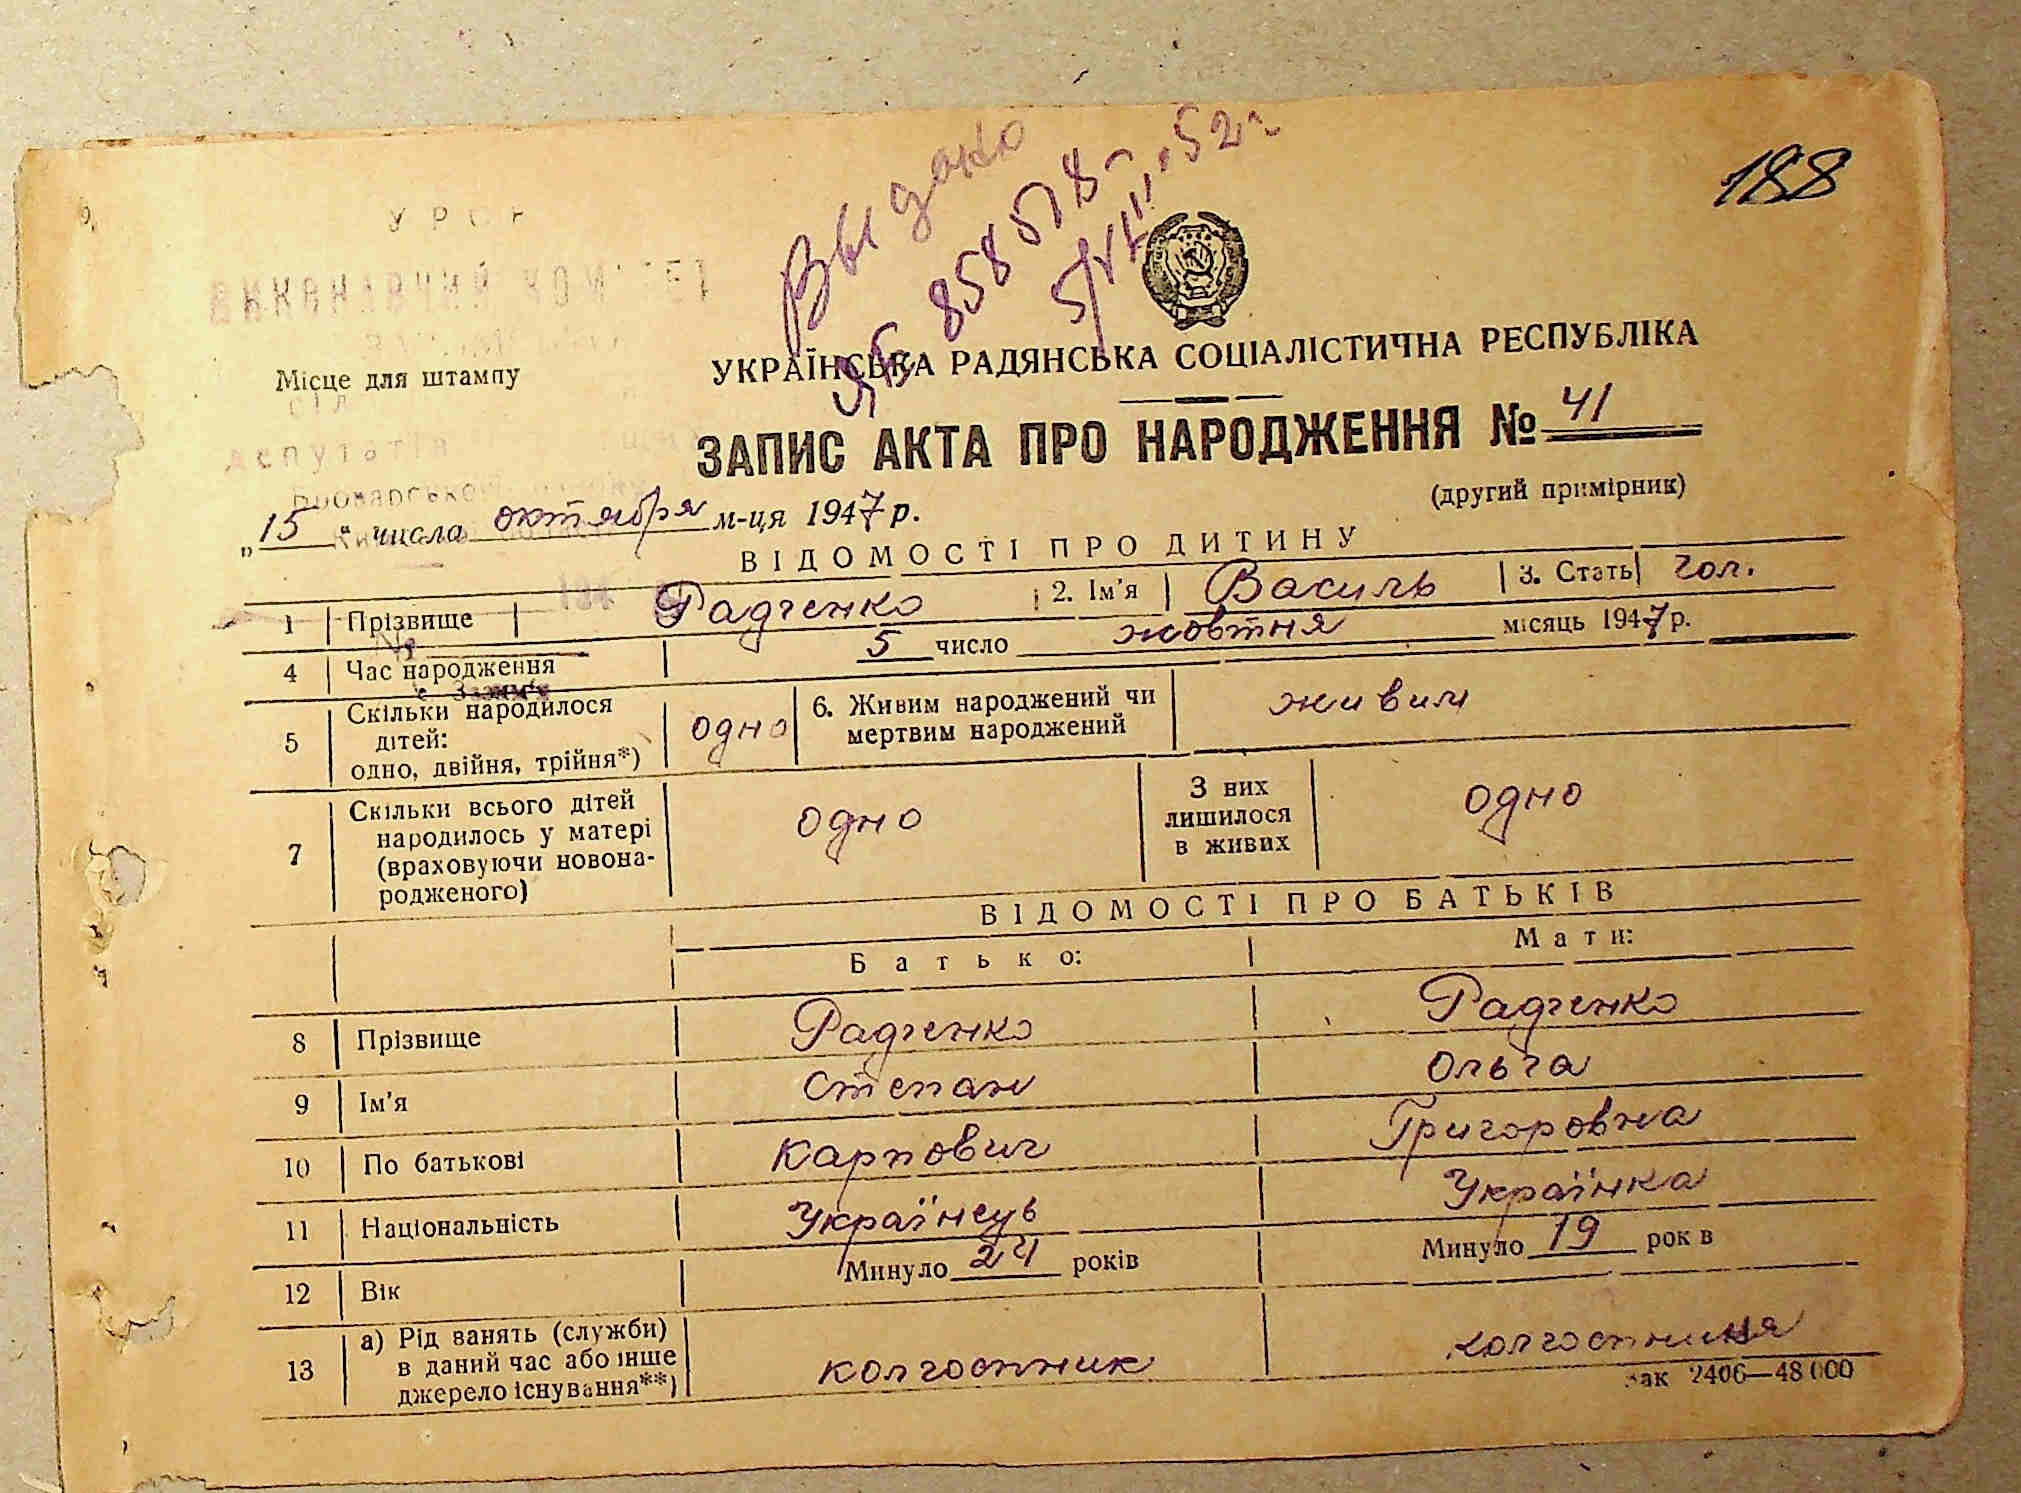 188
Выдано
858518
5/VII 52 г
УРСР
ВИККОНАВЧИЙ КОМІТЕТ
Місце для штампу
УКРАЇНСЬКА РАДЯНСЬКА СОЦІАЛІСТИЧНА РЕСПУБЛІКА
депутатів
ЗАПИС АКТА ПРО НАРОДЖЕННЯ № 41
(другий примірник)
„15" числа октября м-ця 1947 р.
ВІДОМОСТІ ПРО ДИТИНУ
1 Прізвище Радченко 2. Ім'я Василь 3. Стать чол.
4 Час народження 5 число жовтня місяць 1947 р.
с. Зазим'є
5 Скільки народилося дітей: одно, двійня, трійня*) одно 6. Живим народжений чи мертвим народжений живим
7 Скільки всього дітей народилось у матері (враховуючи новона-родженого) одно З них лишилося в живих одно
ВІДОМОСТІ ПРО БАТЬКІВ
Батько: Мати:
8 Прізвище Радченко Радченко
9 Ім'я Степан Ольга
10 По батькові Карпович Григоровна
11 Національність Українець Українка
12 Вік Минуло 24 років Минуло 19 рок в
13 а) Рід занять (служби) в даний час або інше джерело існування**) колгоспник колгоспниця
Зак 2406—48 000